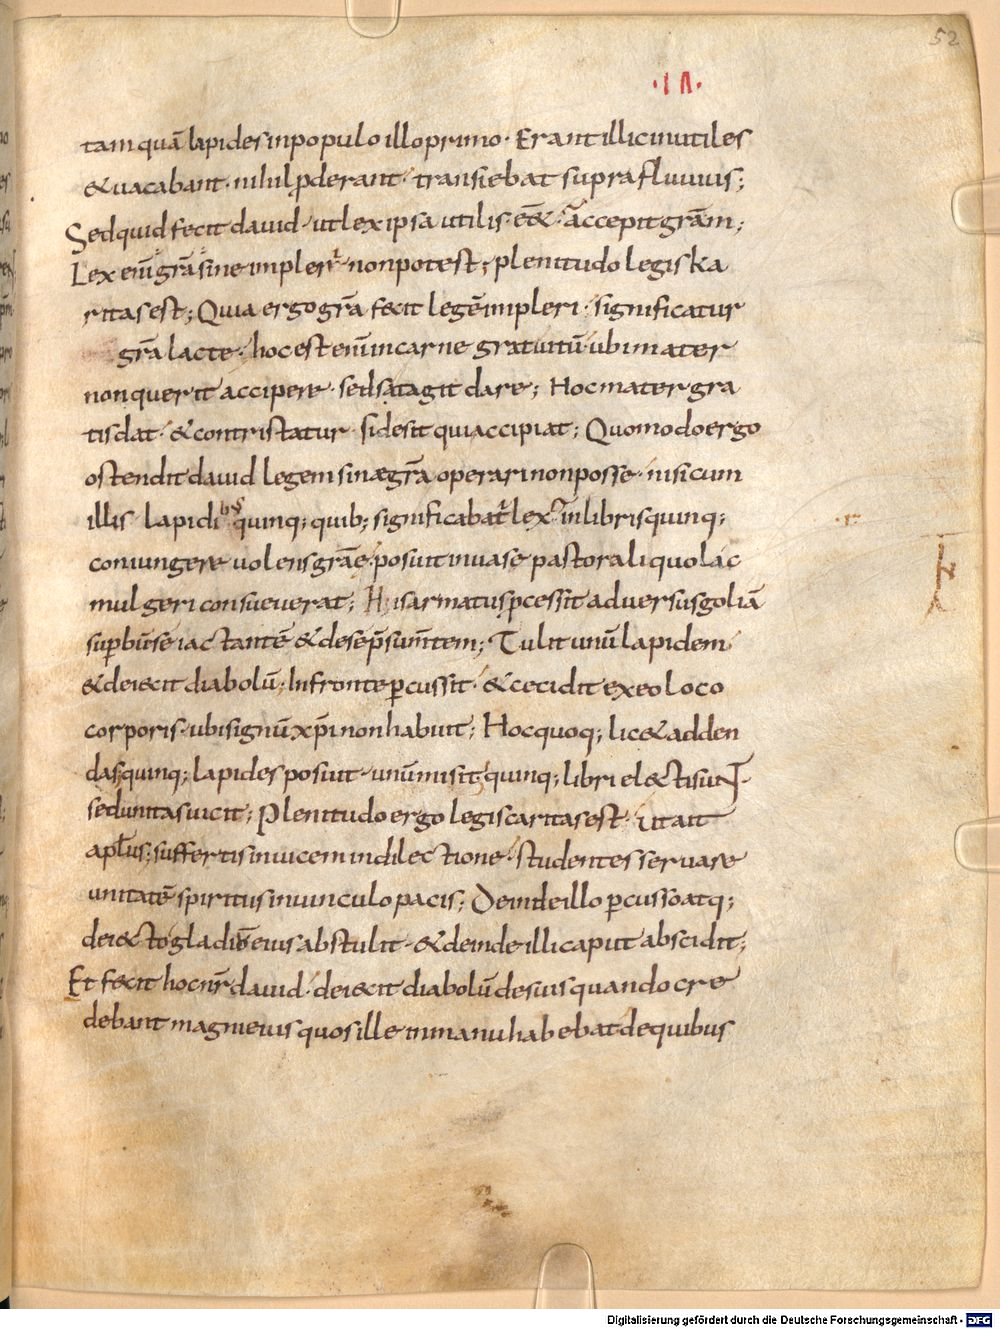 52
·IΛ·
tamquā lapides inpopulo illo primo · Erant illic inutiles
&uacabant · nihil p̄derant · transiebat supra fluuius;
Sed quid fecit dauid · ut lex ipsa utilis eē& · accepit grām;
Lex enī grā sine impleri non potest; plenitudo legis ka
ritas est; Quia ergo grā fecit legē impleri · significatur
grā lacte · hoc est enī incarne gratuitū ubi mater
non querit accipere · sed satagit dare; Hoc mater gra
tis dat · &contristatur si desit qui accipiat; Quomodo ergo
ostendit dauid legem sinæ grā operari non posse · nisi cum
illis lapidibus quinq; quib; significabat lex in libris quinq;
coniungere uolens grāe posuit inuase pastorali quo lac
mulgeri consueuerat; His armatus p̄cessit aduersus goliā
supbū se iactantē &de se p̄sumtem; Tulit unū lapidem
&deiecit diabolū; Infronte pcussit · &cecidit ex eo loco
corporis · ubi signū xp̄i non habuit; Hoc quoq; lic& adden
das; quinq; lapides posuit · unū misit; quinq; libri electi sunt ·
sed unitas uicit; Plenitudo ergo legis caritas est · ut ait
apłus; suffertis inuicem indilectione · studentes seruare
unitatē spiritus inuinculo pacis; Deinde illo pcusso atq;
deiecto gladiū eius abstulit · &deinde illi caput abscidit;
Et fecit hoc nr̄ dauid · deiecit diabolū de suis quando cre
debant magni eius quos ille inmanu habebat de quibus
Digitalisierung gefördert durch die Deutsche Forschungsgemeinschaft - DFG